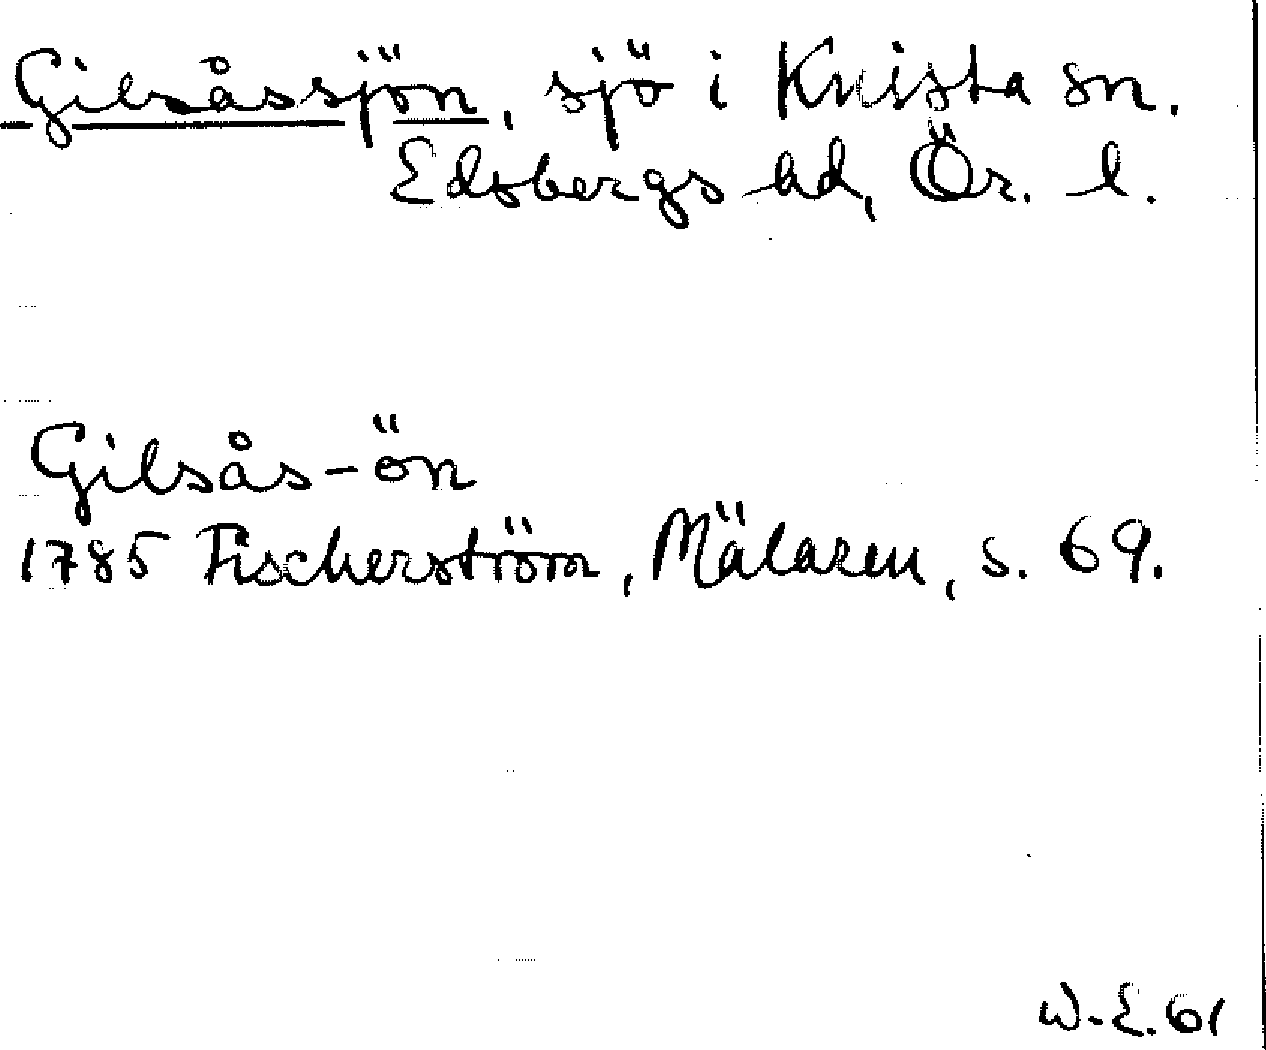 Gilsåssjön, sjö i Knista sn.
Edsbergs hd, Ör. l.
Gilsås-ön
1785 Fischerström, Mälaren, s. 69.
W.-E. 61